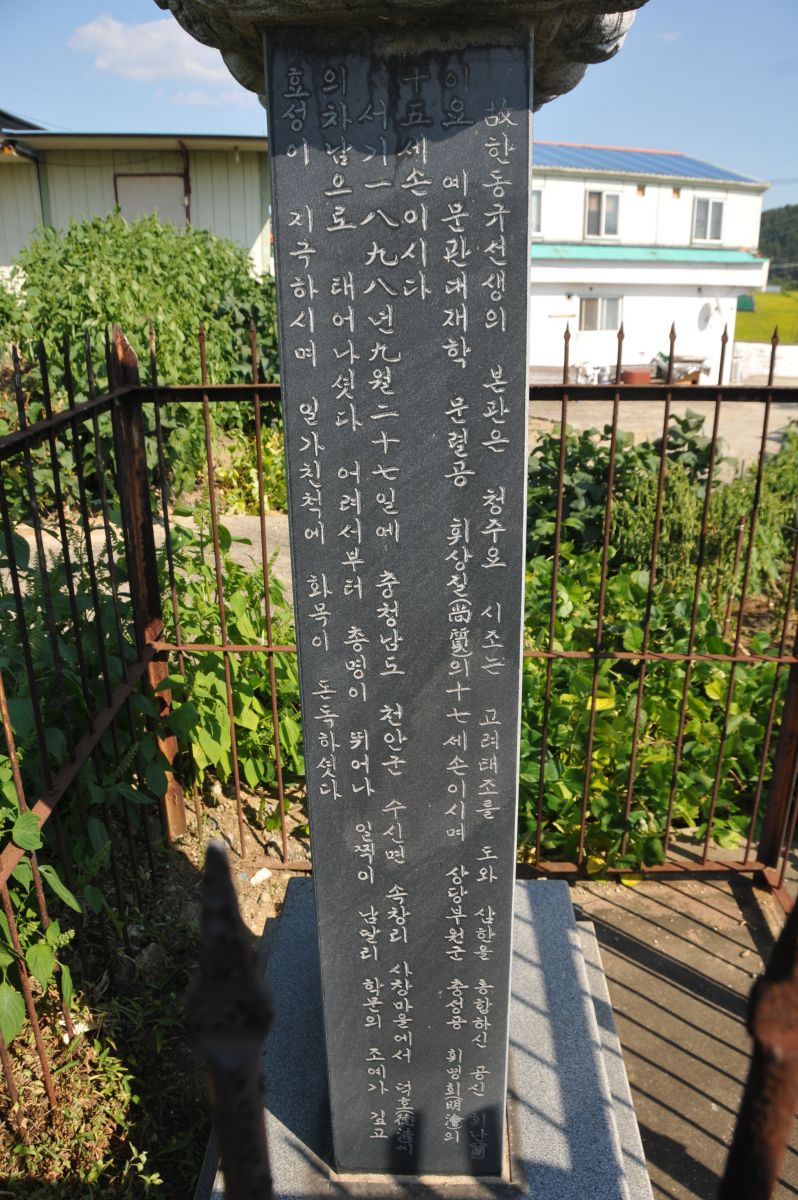 故한동규선생의 본관은 청주요 시조는 고려태조를 도와 삼한을 통합하신 공신 휘란蘭
이요 예문관대제학 문렬공 휘상질尙質의十七세손이시며 상당부원군 충성공 휘명회明澮의
十五세손이시다
서기一八九八년九월二十七일에 충청남도 천안군 수신면 속창리 사창마을에서 덕호德浩씨
의차남으로 태어나셧다 어려서부터 총명이 뛰어나 일찍이 남달리 학문의 조예가 깊고
효성이 지극하시며 일가친척에 화목이 돈독하셧다